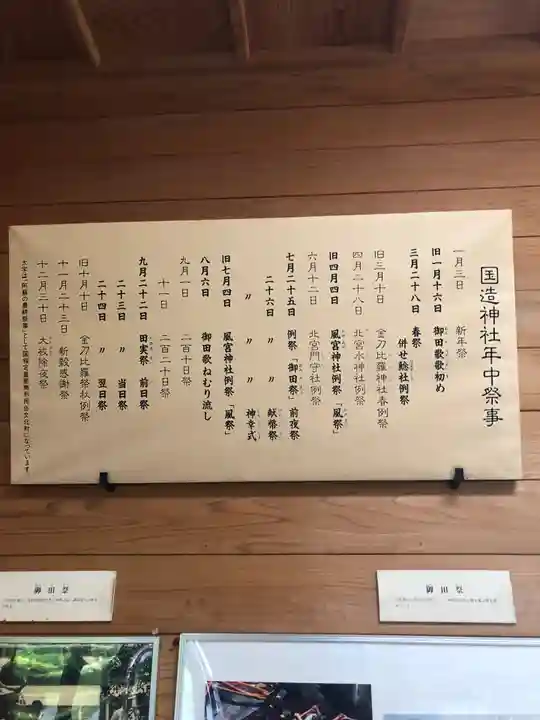 国造神社年中祭事
一月三日 新年祭
旧一月十六日 御田歌歌初め
三月二十八日 春祭
併せ総社例祭
旧三月十日 金刀比羅神社春例祭
四月二十八日 北宮水神社例祭
旧四月四日 風宮神社例祭「風祭」
六月十二日 北宮門守社例祭
七月二十五日 例祭「御田祭」 前夜祭
二十六日 〃 〃 献幣祭
〃 〃 〃 神幸式
旧七月四日 風宮神社例祭「風祭」
八月六日 御田歌ねむり流し
九月一日 二百十日祭
十一日 二百二十日祭
九月二十二日 田実祭 前日祭
二十三日 〃 当日祭
二十四日 〃 翌日祭
旧十月十日 金刀比羅祭秋例祭
十一月二十三日 新穀感謝祭
十二月三十日 大祓除夜祭
太字は「阿蘇の農耕祭事」として国指定重要無形民俗文化財になっています
御田祭
御田祭